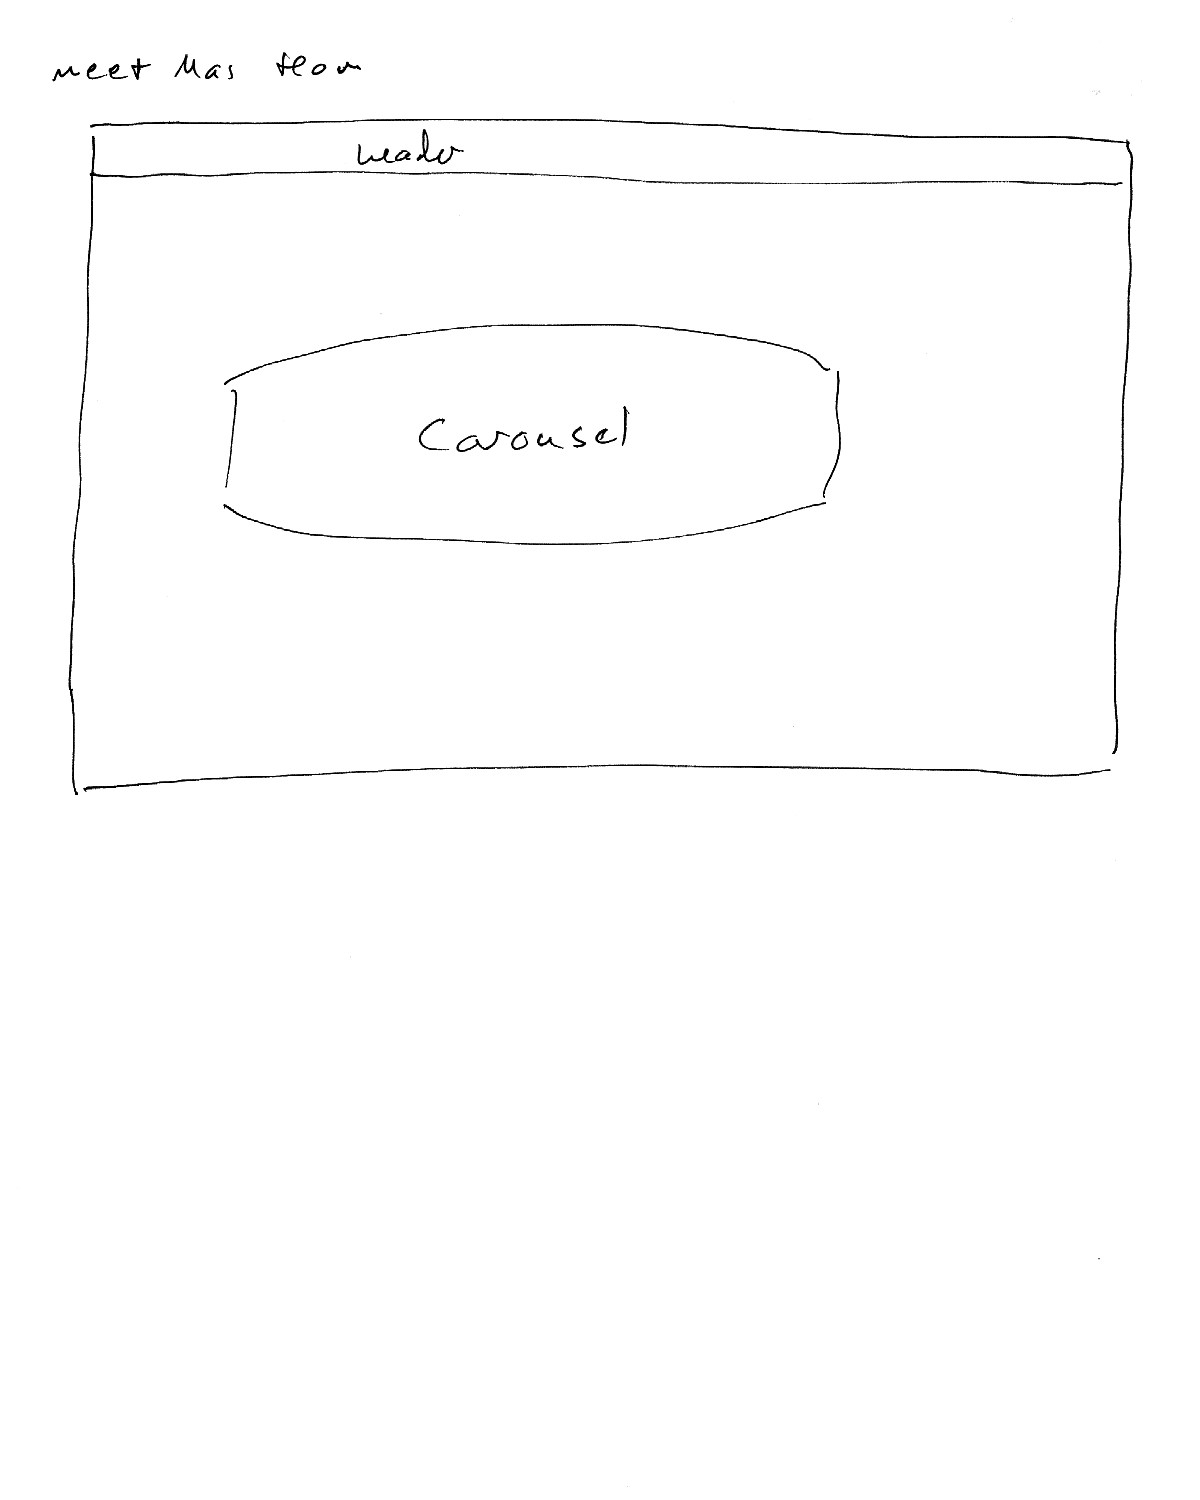 meet Mas team
header
Carousel